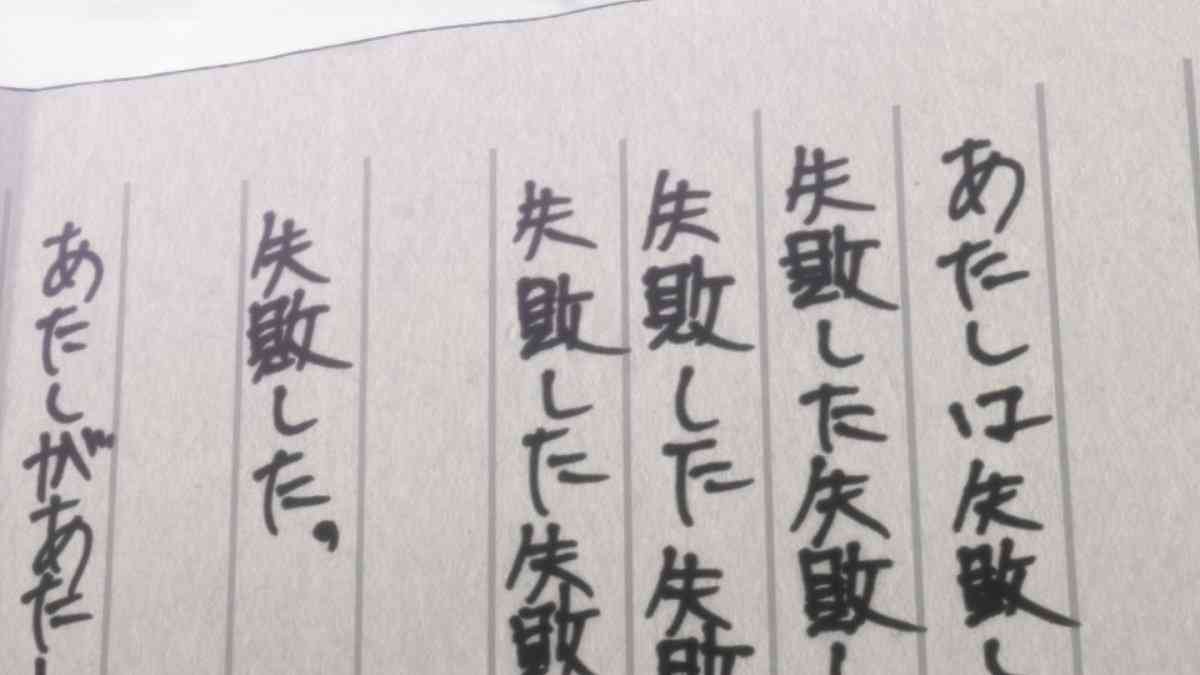 あたしは失敗し
失敗した失敗し
失敗した失敗
失敗した失敗
失敗した。
あたしがあたし